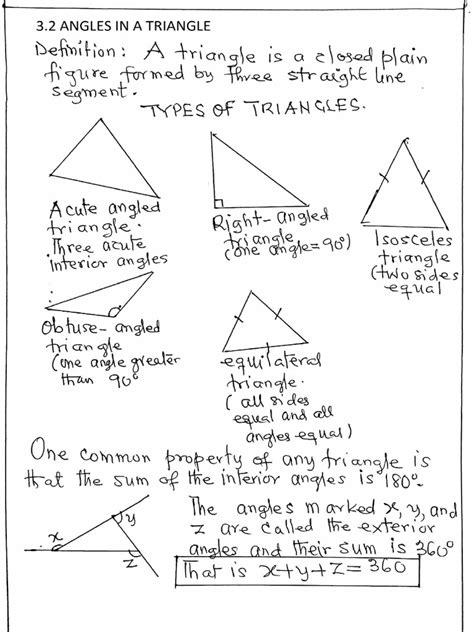 3.2 ANGLES IN A TRIANGLE
Definition: A triangle is a closed plain
figure formed by three straight line
segment.
TYPES OF TRIANGLES.
Acute angled
triangle.
Three acute
interior angles
Right-angled
triangle
(one angle=90°)
Isosceles
triangle
(two sides
equal
Obtuse-angled
triangle
(one angle greater
than 90°
equilateral
triangle.
(all sides
equal and all
angles equal)
One common property of any triangle is
that the sum of the interior angles is 180°.
x
y
z
The angles marked x, y, and
z are called the exterior
angles and their sum is 360°
That is x+y+z=360